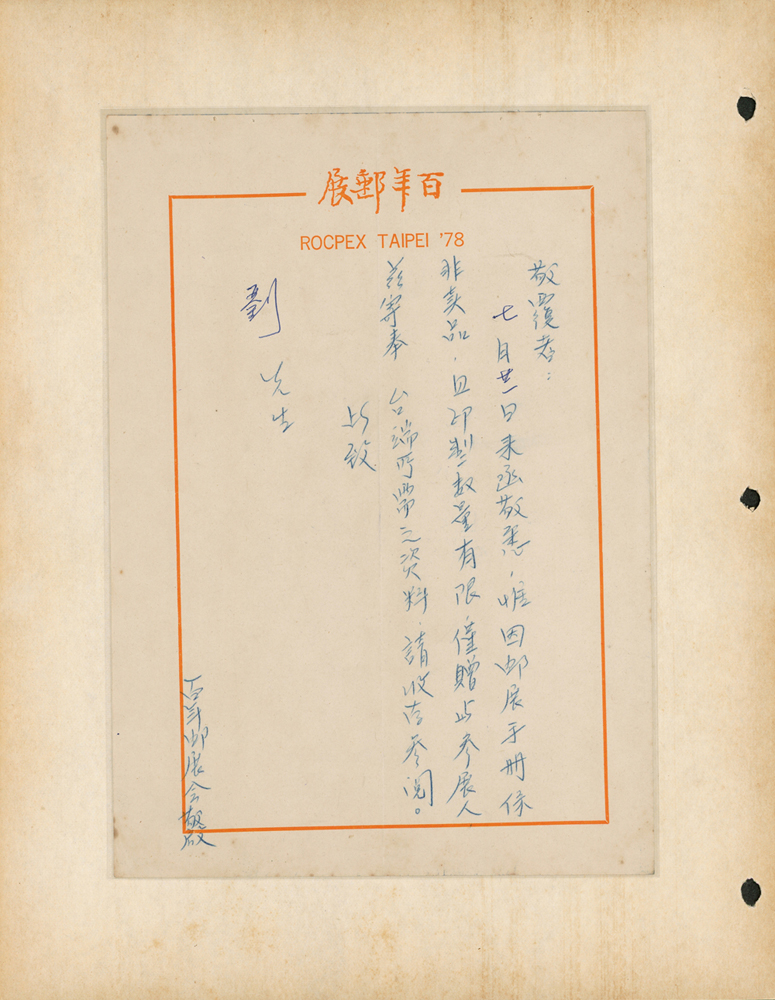 百年郵展
ROCPEX TAIPEI '78
敬覆者：
七月廿一日来函敬悉，惟因邮展手册係
非卖品，且印製数量有限，僅贈与参展人
兹寄奉 台端所需之资料，請收存参阅。
此致
劉 先生
百年邮展会敬啟